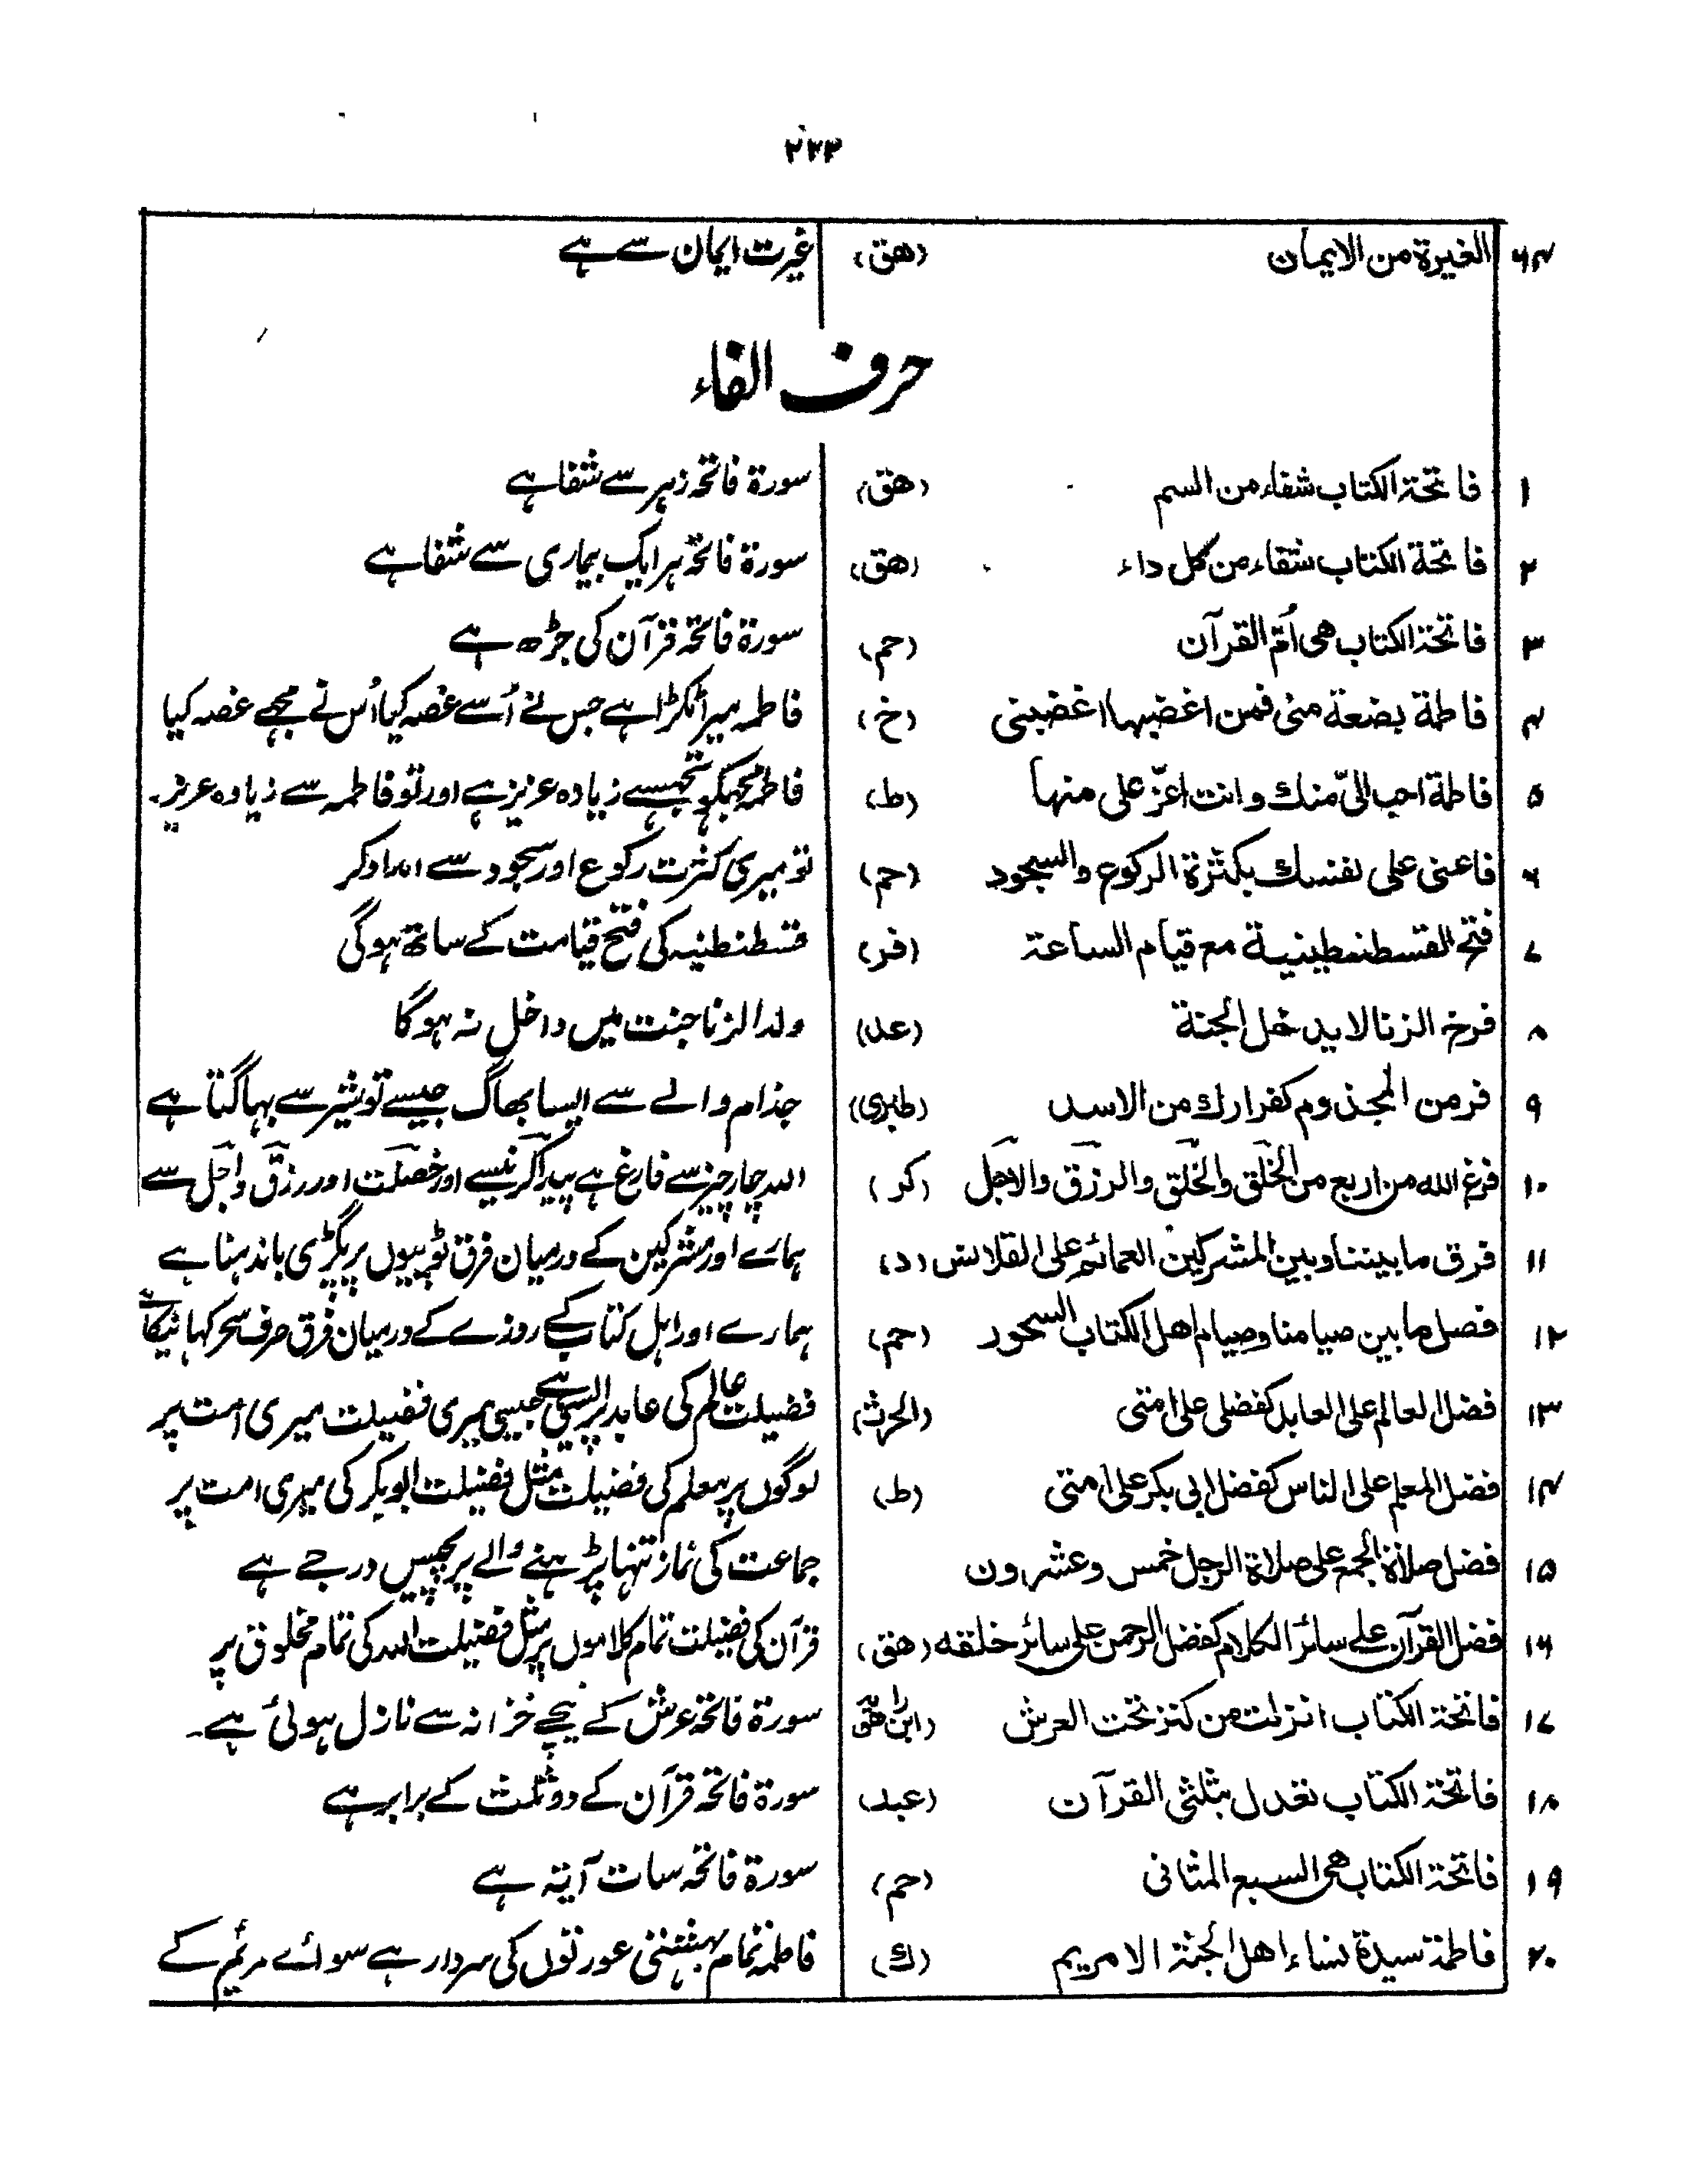 ۲۳۳
۶۴ الغیرة من الایمان (هق) غیرت ایمان سے ہے
حرف الفاء
۱ فاتحة الکتاب شفاء من السم (هق) سورة فاتحہ زہر سے شفا ہے
۲ فاتحة الکتاب شفاء من کل داء (هق) سورة فاتحہ ہر ایک بیماری سے شفا ہے
۳ فاتحة الکتاب هی اُمّ القرآن (حم) سورة فاتحہ قرآن کی جڑھ ہے
۴ فاطمة بضعة منی فمن اغضبها اغضبنی (خ) فاطمہ میرا ٹکڑا ہے جس نے اُسے غصہ کیا اُس نے مجھے غصہ کیا
۵ فاطمة احب الیّ منك وانت اعزّ علی منها (ط) فاطمہ مجہکو تجہسے زیادہ عزیز ہے اور تو فاطمہ سے زیادہ عزیز۔
۶ فاعنی علی نفسك بکثرة الرکوع والسجود (حم) تو میری کثرت رکوع اور سجود سے امداد کر
۷ فتح القسطنطینیة مع قیام الساعة (فر) قسطنطنیہ کی فتح قیامت کے ساتھ ہوگی
۸ فرخ الزنا لا یدخل الجنة (عد) ولد الزنا جنت میں داخل نہ ہوگا
۹ فر من المجذوم کفرارك من الاسد (طبری) جذام والے سے ایسا بھاگ جیسے تو شیر سے بہاگتا ہے
۱۰ فرغ الله من اربع من الخَلق والخُلق والرزق والاجل (کر) اللہ چار چیز سے فارغ ہے پیدا کرنیسے اور خصلت اور رزق و اجل سے
۱۱ فرق ما بیننا وبین المشرکین العمائم علی القلانس (د) ہمارے اور مشرکین کے درمیان فرق ٹوپیوں پر پگڑی باندہنا ہے
۱۲ فصل ما بین صیامنا وصیام اهل الکتاب السحور (حم) ہمارے اور اہل کتاب کے روزے کے درمیان فرق حرف سحر کہانیکا ہے
۱۳ فضل العالم علی العابد کفضلی علی امتی (الحرث) فضیلت عالم کی عابد پر ایسی ہے جیسی میری فضیلت میری امت پر
۱۴ فضل المعلم علی الناس کفضل ابی بکر علی امتی (ط) لوگوں پر معلم کی فضیلت مثل فضیلت ابوبکر کی میری امت پر
۱۵ فضل صلاة الجمع علی صلاة الرجل خمس وعشرون جماعت کی نماز تنہا پڑہنے والے پر پچیس درجے ہے
۱۶ فضل القرآن علی سائر الکلام کفضل الرحمن علی سائر خلقه (هق) قرآن کی فضیلت تمام کلاموں پر مثل فضیلت اللہ کی تمام مخلوق پر
۱۷ فاتحة الکتاب انزلت من کنز تحت العرش (ابن راہویہ) سورة فاتحہ عرش کے نیچے خزانہ سے نازل ہوئی ہے۔
۱۸ فاتحة الکتاب تعدل بثلثی القرآن (عبد) سورة فاتحہ قرآن کے دو ثلث کے برابر ہے
۱۹ فاتحة الکتاب هی السبع المثانی (حم) سورة فاتحہ سات آیتہ ہے
۲۰ فاطمة سیدة نساء اهل الجنة الا مریم (ك) فاطمہ تمام بہشتنی عورتوں کی سردار ہے سوائے مریم کے